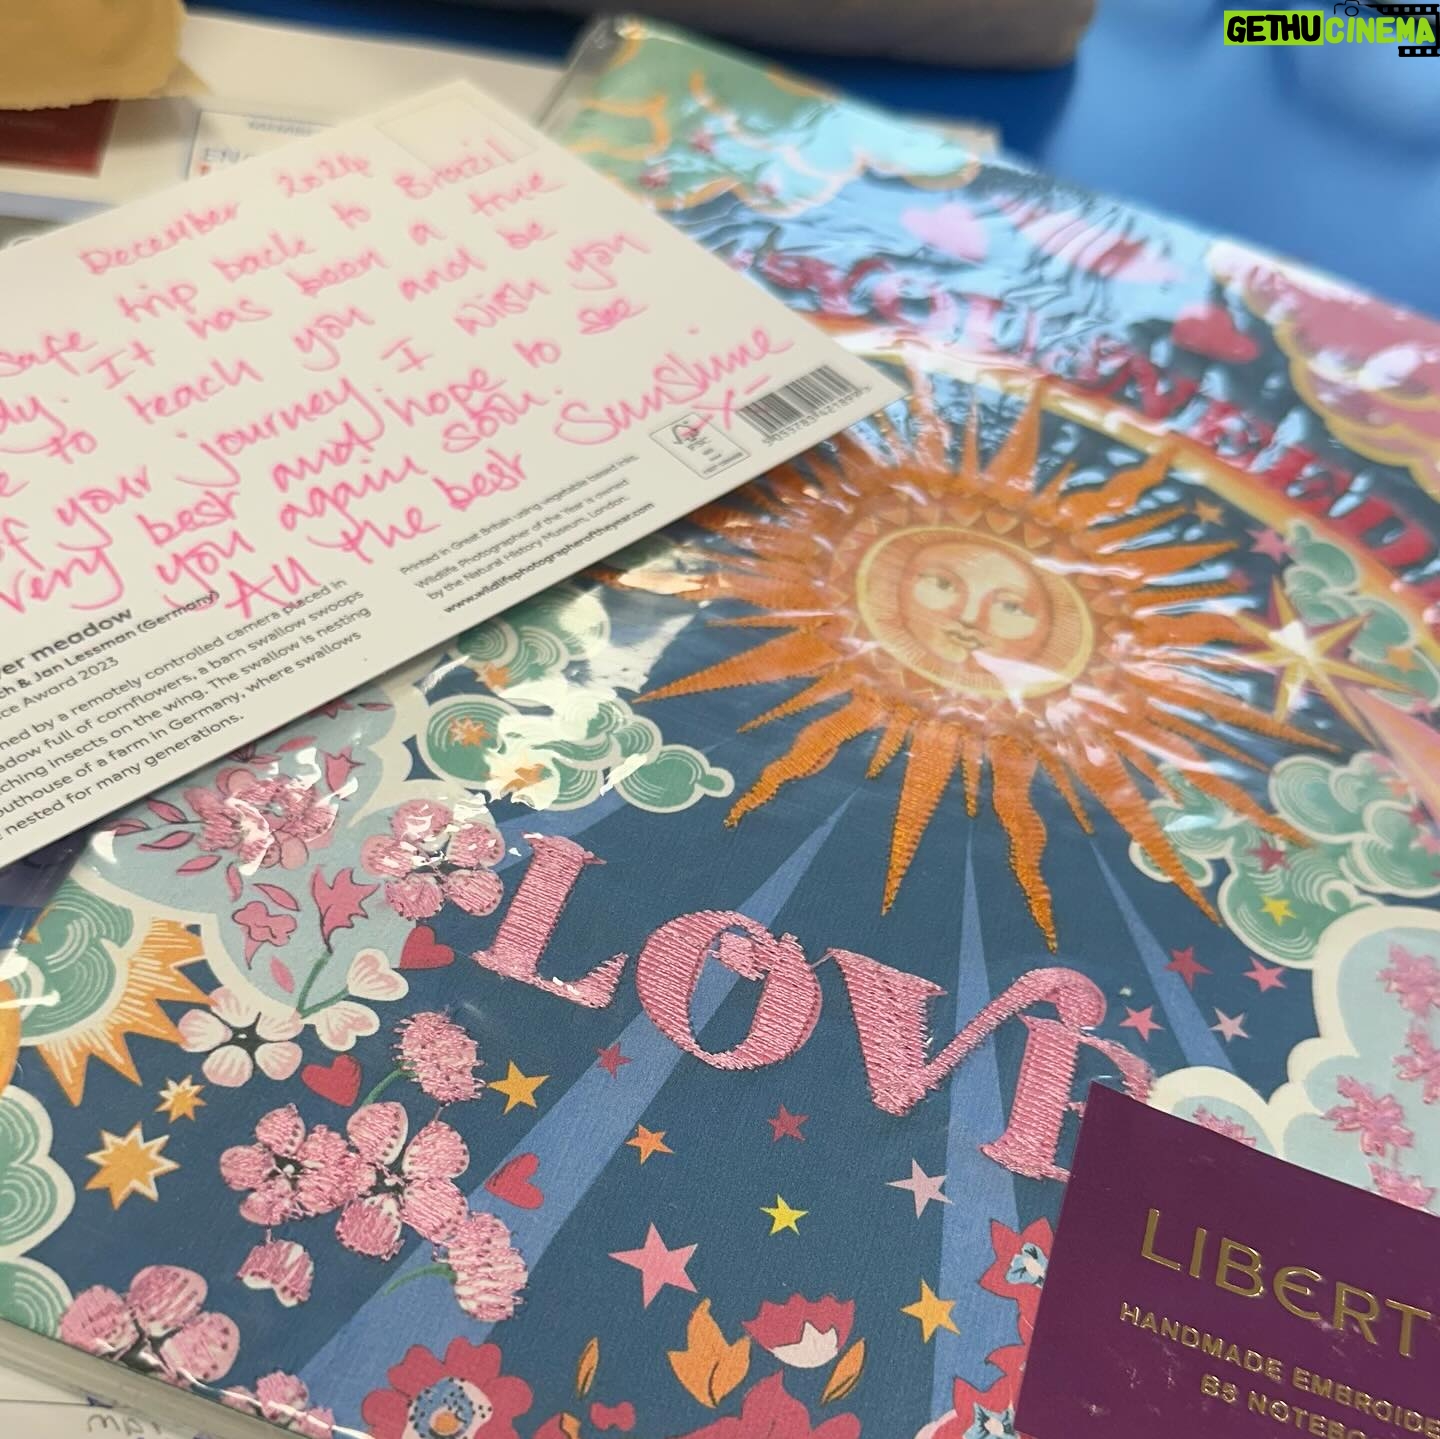 GETHUCINEMA
December 2024
safe trip back to Brazil
It has been a true
to teach you and be
of your journey. I wish you
very best and hope to see
you again soon.
All the best Sunshine
-X-
5055783421899
Printed in Great Britain using vegetable based inks.
Wildlife Photographer of the Year is owned
by the Natural History Museum, London.
www.wildlifephotographeroftheyear.com
meadow
& Jan Lessman (Germany)
Award 2023
by a remotely controlled camera placed in
full of cornflowers, a barn swallow swoops
insects on the wing. The swallow is nesting
of a farm in Germany, where swallows
nested for many generations.
YOU NEED
LOVE
LIBERT
HANDMADE EMBROIDE
B5 NOTEBO